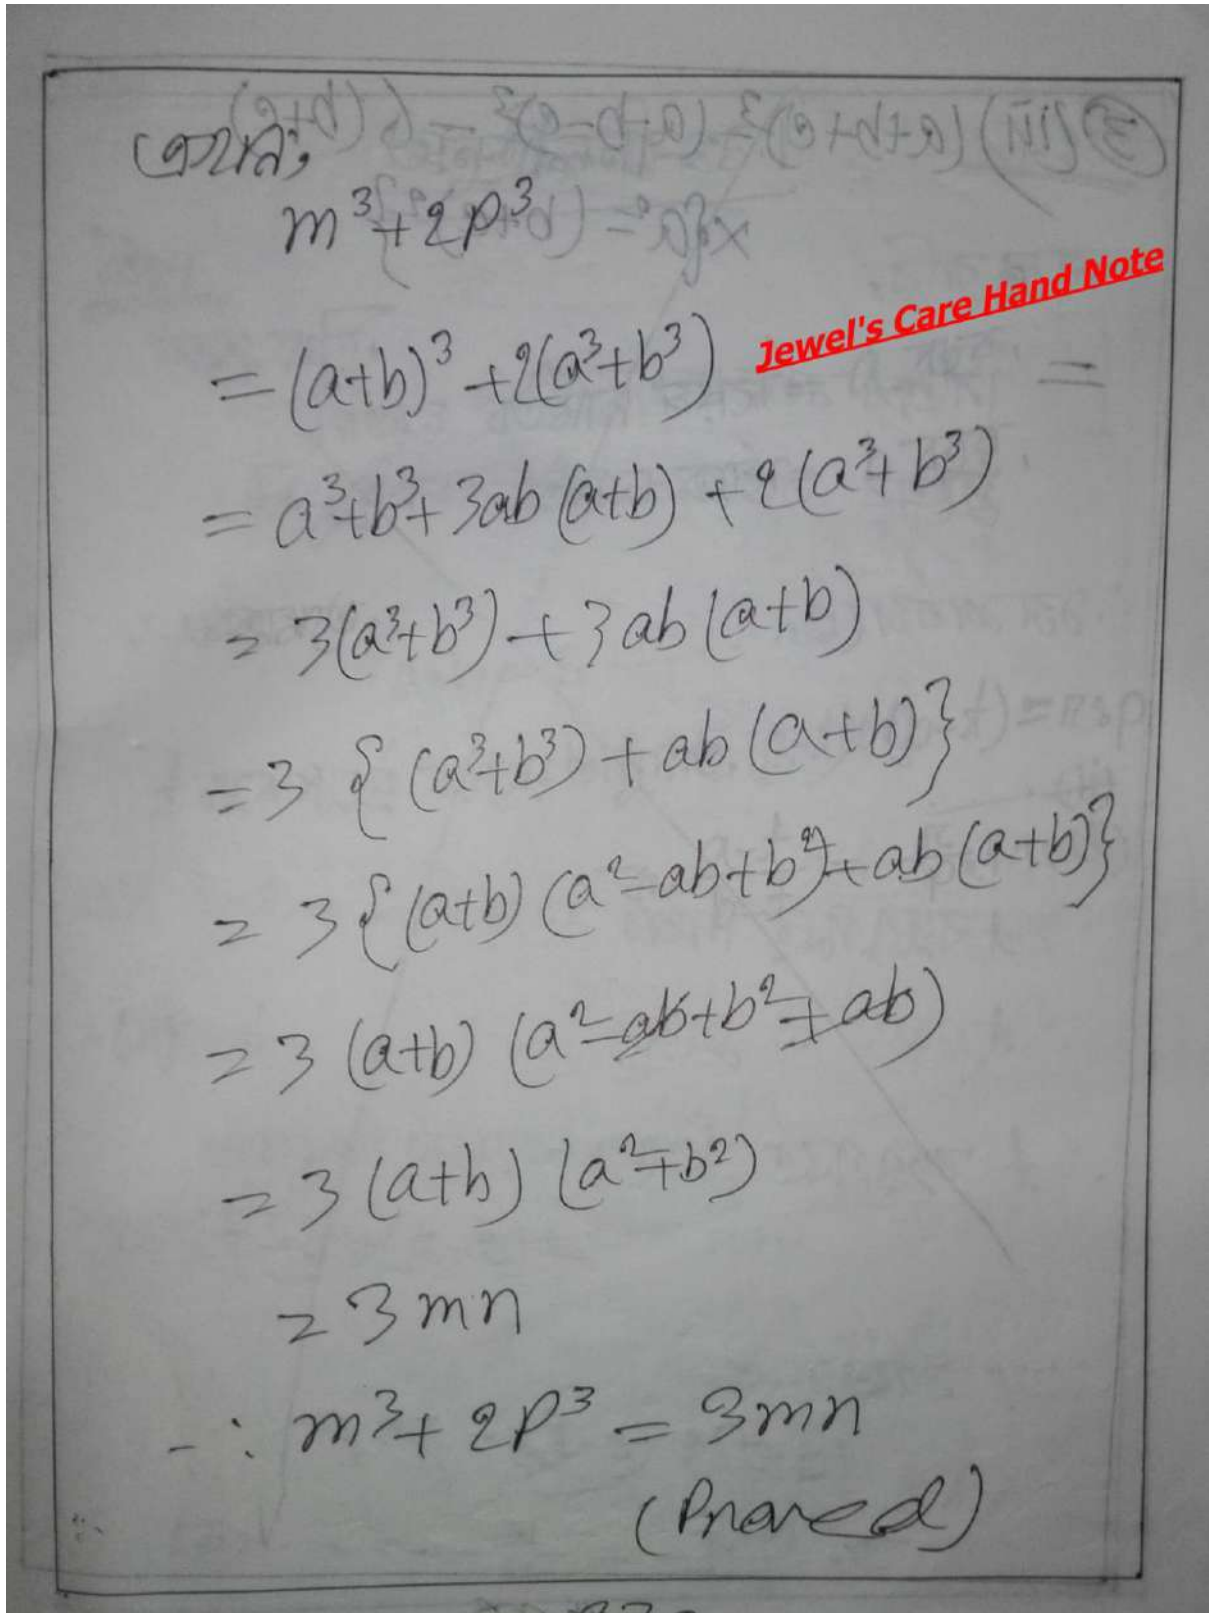 এখন,
m³+2p³
Jewel's Care Hand Note
= (a+b)³ +2(a³+b³)
= a³+b³+3ab(a+b) +2(a³+b³)
= 3(a³+b³)+3ab(a+b)
=3 {(a³+b³)+ab(a+b)}
= 3{(a+b)(a²-ab+b²)+ab(a+b)}
=3 (a+b) (a²-ab+b²+ab)
=3(a+b) (a²+b²)
= 3mn
∴ m³+2p³ = 3mn
(Proved)